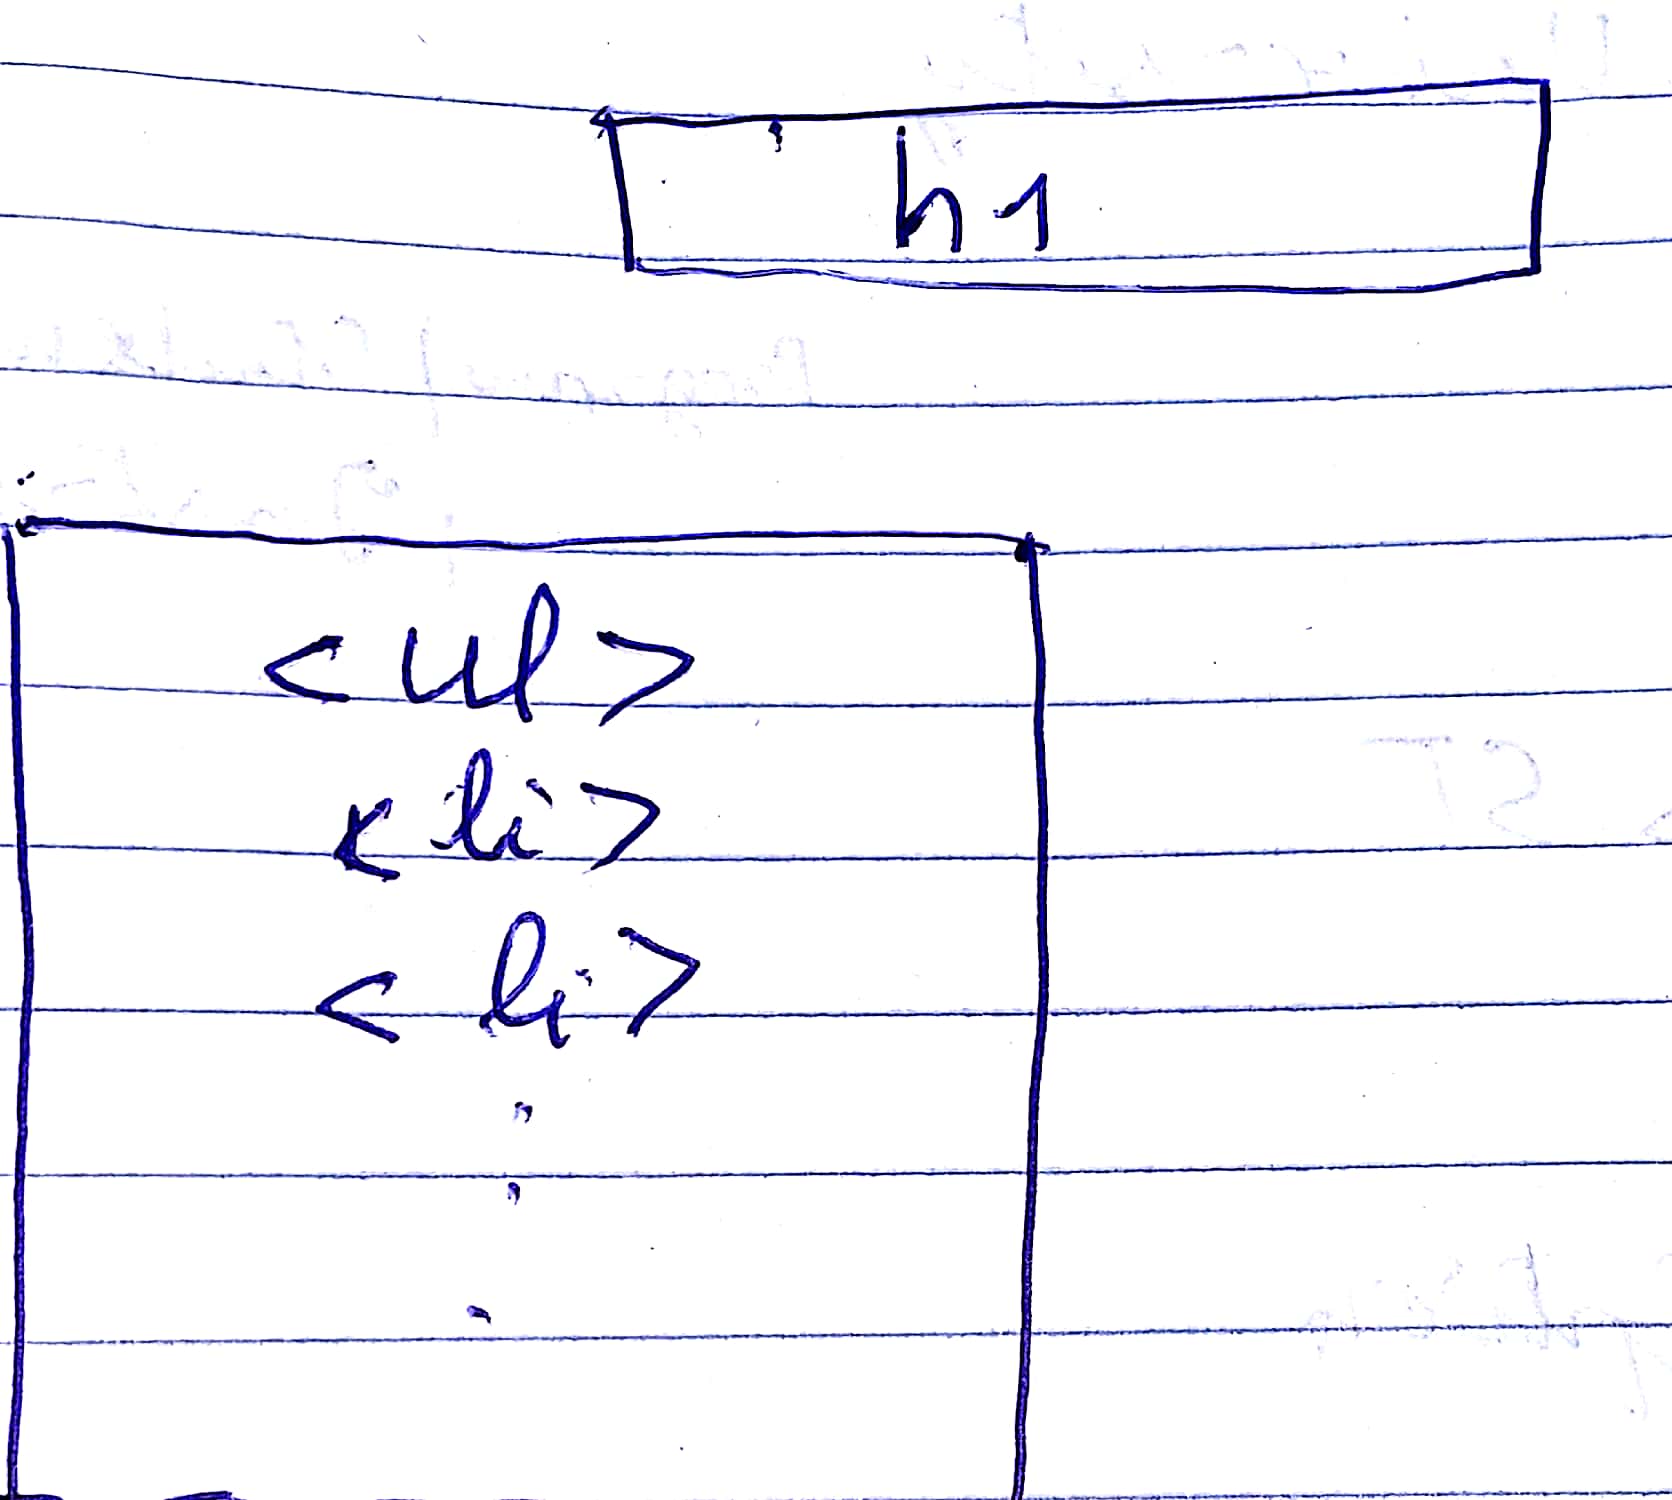 h1
<ul>
<li>
<li>
.
.
.